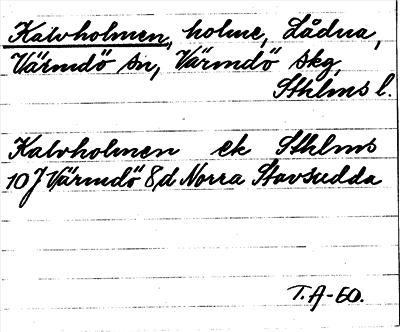 Kalvholmen, holme, Lådna,
Värmdö sn, Värmdö skg,
Sthlms l.
Kalvholmen ek Sthlms
10J Värmdö 8,d Norra Stavsudda
T.A-60.